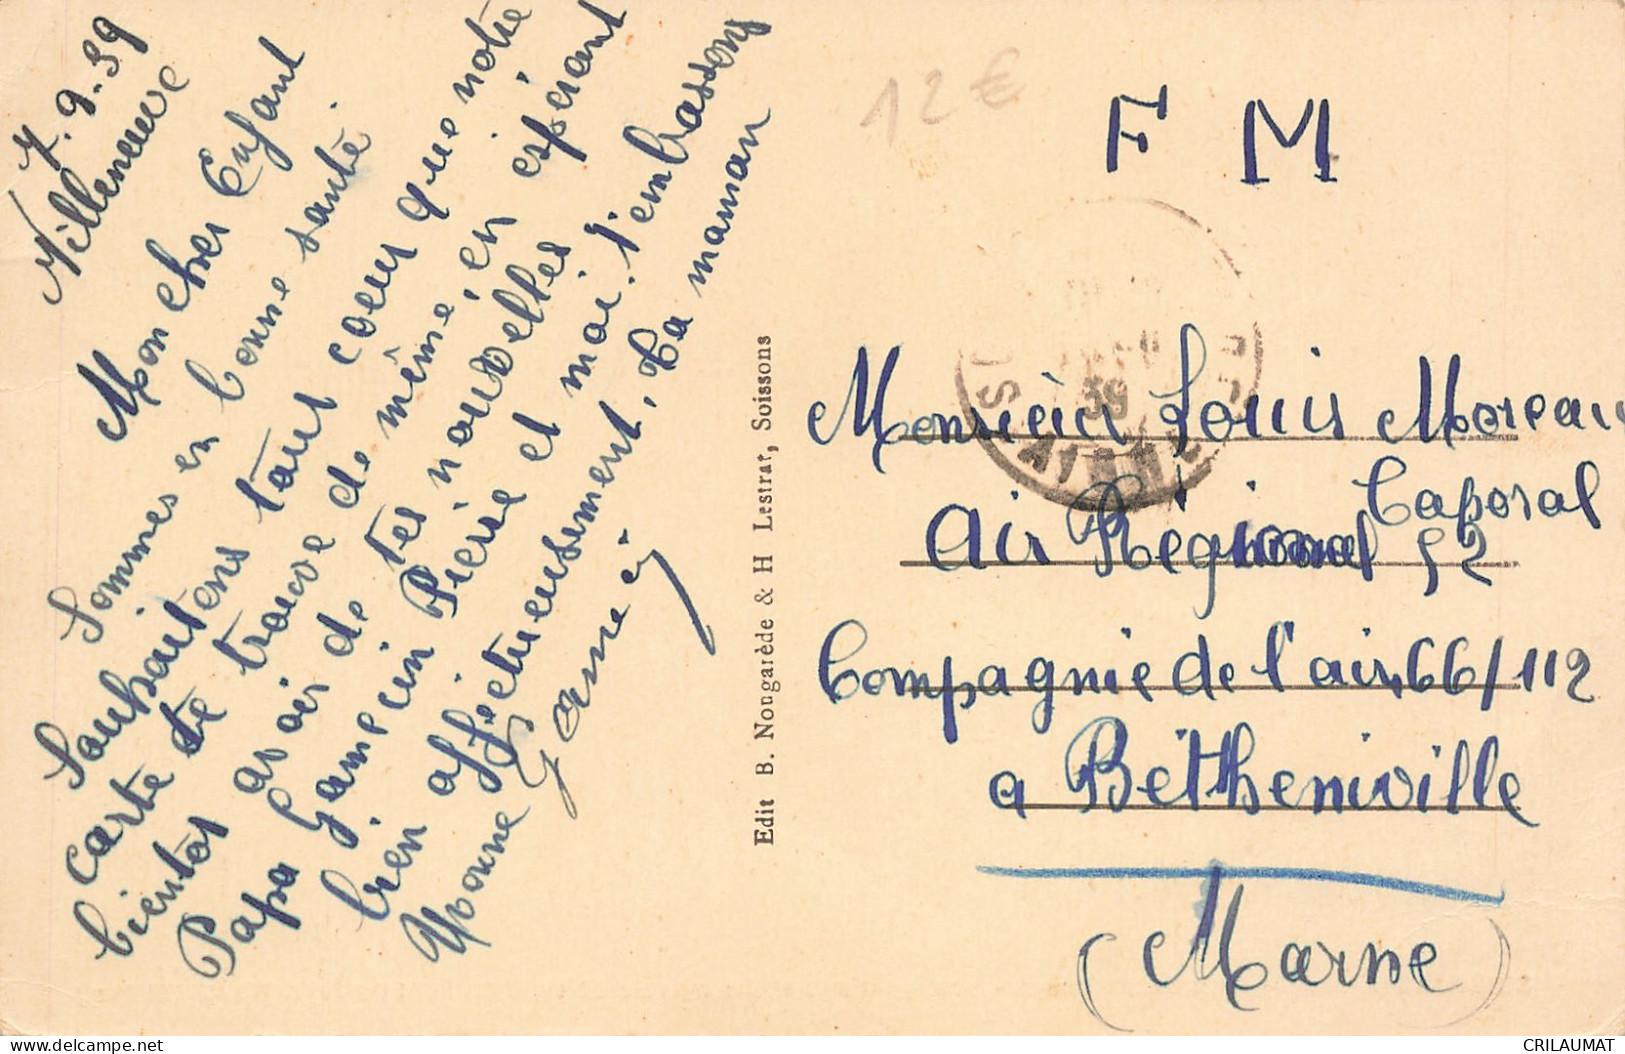 7.9.39
Villeneuve
Mon cher Enfant
Sommes en bonne santé.
Souhaitens tout coeur que notre
carte te trouve de même, en espérant
bientot avoir de tes nouvelles
Papa Gamecin Pierre et moi t'embrassons
bien affectueusement, Ta maman
Yvonne Gamecin
Edit B. Nougarède & H Lestrat, Soissons
12€
F M
39
AISNE
Monsieur Louis Moreau
Caporal
Air Régional 52
Compagnie de l'air 66/112
a Bétheniville
(Marne)
CRILAUMAT